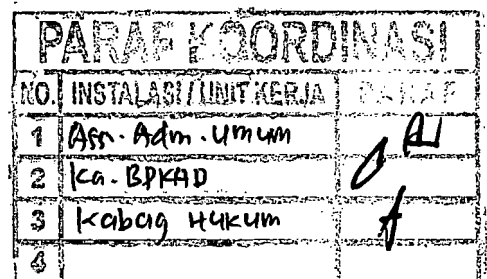 PARAF KOORDINASI
NO. INSTALASI / UNIT KERJA PARAF
1 Ass. Adm. Umum
2 Ka. BPKAD
3 Kabag Hukum
4